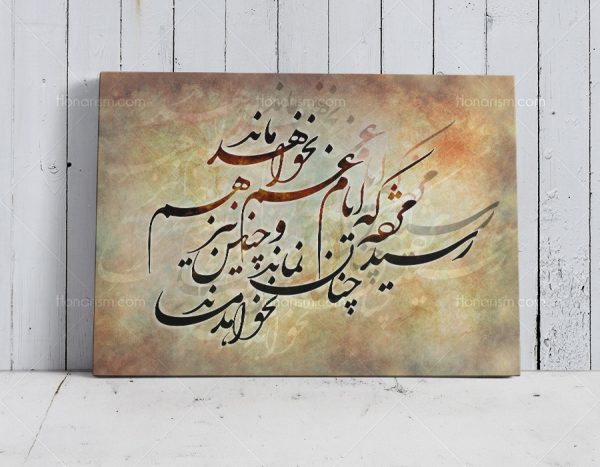 honarism.com honarism.com
رسید مژده که ایام غم نخواهد ماند
چنان نماند و چنین نیز هم نخواهد ماند
honarism.com honarism.com